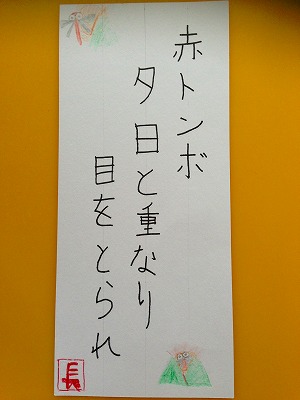 赤トンボ
夕日と重なり
目をとられ
長